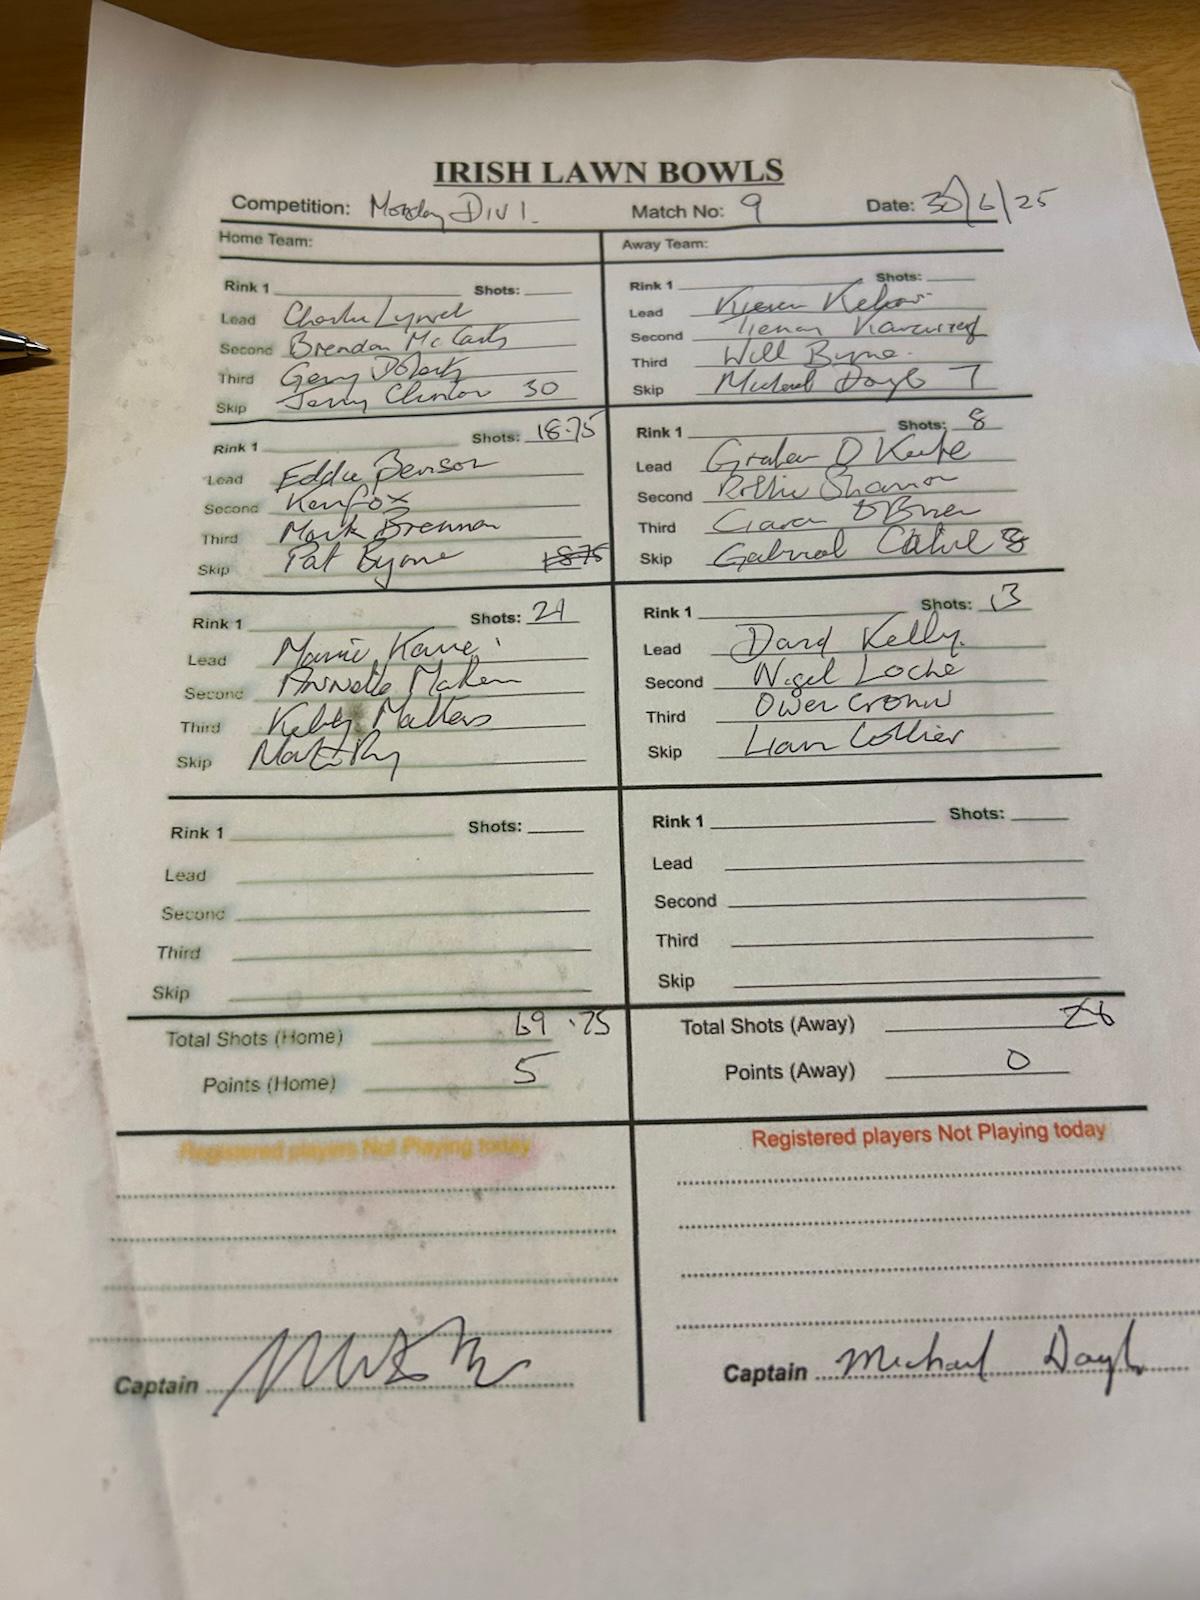 IRISH LAWN BOWLS
Competition: Monday DIV 1. Match No: 9 Date: 30/6/25
Home Team:
Rink 1 Shots:
Lead Charlie
Second Brendan Mc
Third Gerry
Skip Jerry Clinton 30
Rink 1 Shots: 18.75
Lead Eddie Benson
Second Ken Fox
Third Mark Brennan
Skip Pat Byrne 18.75
Rink 1 Shots: 21
Lead Kane
Second
Third
Skip
Rink 1 Shots:
Lead
Second
Third
Skip
Total Shots (Home) 69.75
Points (Home) 5
Registered players Not Playing today
Captain
Away Team:
Rink 1 Shots:
Lead
Second
Third Will Byrne
Skip Michael Doyle 7
Rink 1 Shots: 8
Lead O Keefe
Second Shannon
Third Ciaran O'Brien
Skip Gabriel 8
Rink 1 Shots: 13
Lead David Kelly
Second Nigel Loche
Third Owen Cronin
Skip Liam Collier
Rink 1 Shots:
Lead
Second
Third
Skip
Total Shots (Away) 28
Points (Away) 0
Registered players Not Playing today
Captain Michael Doyle